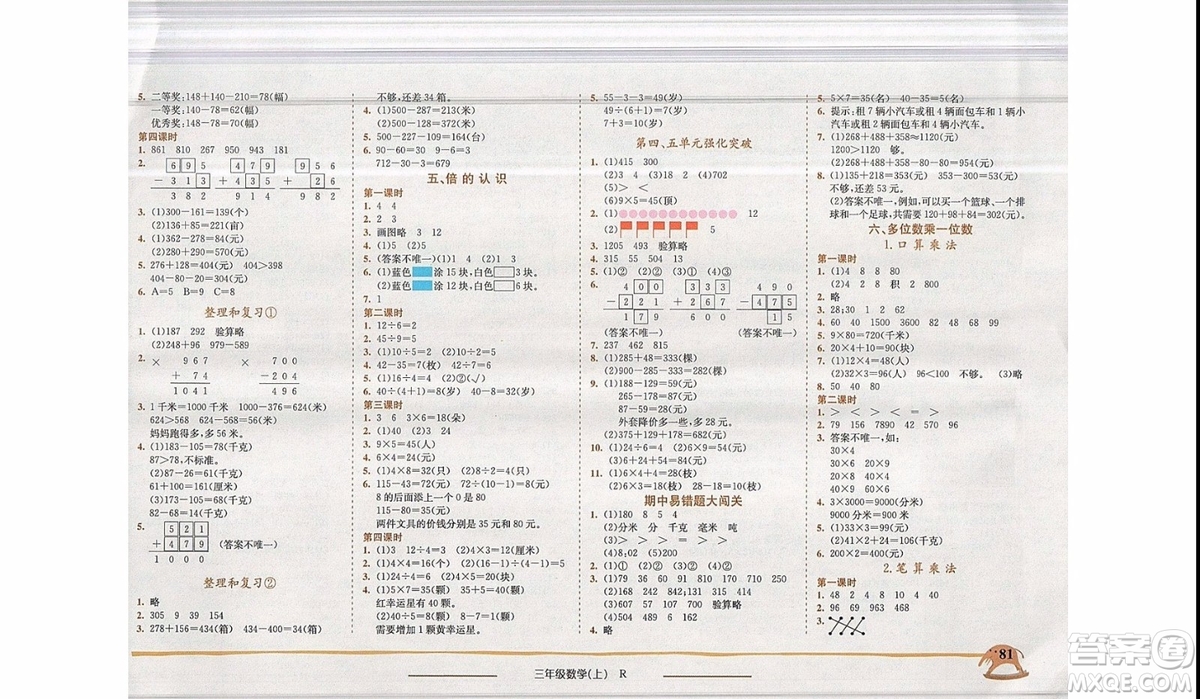 5. 二等奖:148+140-210=78(幅)
一等奖:140-78=62(幅)
优秀奖:210-140=70(幅)
第四课时
1. 861 810 267 950 943 181
2. 6 9 5 4 7 9 9 5 6
- 3 1 3 + 4 3 5 + 2 6
3 8 2 9 1 4 9 8 2
3. (1)300-161=139(个)
(2)136+85=221(亩)
4. (1)362-278=84(元)
(2)280+290=570(元)
5. 276+128=404(元) 404>398
404-80-20=304(元)
6. A=5 B=9 C=8
整理和复习①
1. (1)187 292 验算略
(2)248+96 979-589
2. × 967 × 700
+ 74 -204
1041 496
3. 1千米=1000千米 1000米
624>568 624-568=56(米)
妈妈跑得多,多56米。
4. (1)183-105=78(千克)
87>78,不标准。
(2)87-26=61(千克)
61+100=161(厘米)
(3)173-105=68(千克)
82-68=14(千克)
5. 5 2 1
+ 4 7 9 (答案不唯一)
1 0 0 0
整理和复习②
1. 略
2. 305 9 39 154
3. 278+156=434(箱) 434-400=34(箱)
不够,还差34箱。
4. (1)500-287=213(米)
(2)500-128=372(米)
5. 500-227-109=164(元)
6. 90-60=30 9-6=3
712-30-3=679
五、倍的认识
第一课时
1. 4 4
2. 2 3
3. 画图略 3
4. (1)5 (2)5
5. (答案不唯一)(1)1 4 (2)1 3
6. (1)蓝色 涂15块,白色 3块。
(2)蓝色 涂12块,白色 6块。
7. 1
第二课时
1. 12÷6=2
2. 45÷9=5
3. (1)10÷5=2 (2)10÷2=5
4. 42-35=7(枚) 42÷7=6
5. (1)16÷4=4 (2)②(√)
6. 40÷(4+1)=8(岁) 40-8=32(岁)
第三课时
1. 3 6 3×6=18(朵)
2. (1)40 (2)3 24
3. 9×5=45(人)
4. 6×4=24(元)
5. (1)4×8=32(只) (2)4×2=8(只)
6. 43-35=8(元) 8×10=80(元)
8的后面添上一个0
两件文具的价钱分别是35元和80元。
第四课时
1. (1)3 12÷4=3 (2)4×3=12(厘米)
2. (1)4×4=16(个) (2)16÷(1+1)=8(个)
3. (1)24÷6=4 (2)4×5=20(元)
4. (1)5×7=35(颗) 35+5=40(颗)
红幸运星有40颗。
(2)40÷5=8(颗) 8-7=1(颗)
需要增加1颗黄幸运星。
5. 55-3-3=49(岁)
49÷(6+1)=7(岁)
7+3=10(岁)
第四、五单元强化突破
1. (1)415 300
(2)3 4 (3)18 2 (4)702
(5)> <
(6)9×5=45(顶)
2. (1) 12
(2) 5
3. 1205 493 验算略
4. 315 55 504 13
5. (1)② (2)① (3)② (4)② (5)③
6. 4 0 0 3 3 3 4 9 0
- 2 2 1 + 2 6 7 - 4 7 5
1 7 9 6 0 0 1 5
(答案不唯一) (答案不唯一)
7. 237 462 815
8. (1)285+48=333(棵)
(2)600-333=267(棵)
9. (1)188-129=59(元)
265-178=87(元)
87-59=28(元)
外套降价多一些,多28元。
(2)375+129+178=682(元)
10. (1)24÷6=4 (2)6×9=54(元)
(3)54÷9=6
11. (1)4×6=24(枝) (2)4+24=28(枝)
(3)6×3=18(枝) 28-18=10(枝)
期中易错题大闯关
1. (1)180 8 5 4 (2)115
(2)分米 分 千克 毫米 吨
(3)> < = > = >
(4)8,02
2. (1)① (2)② (3)② (4)② (5)②
3. (1)79 36 91 80 67 90 310 430
(2)168 242 842(┄┄)131
(3)607 567 107 700 验算略
(4)504 658 270 840
4. 略
5. 5×7=35(名) 40-35=5(名)
6. 提示:租7辆小汽车或租4辆面包车和1辆小
汽车或租2辆面包车和4辆小汽车。
7. (1)268+488+358≈1120(元)
1200>1120 够。
(2)268+488+358=1114(元)
8. (1)135+218=353(元) 353-300=53(元)
不够,还差53元。
(2)答案不唯一,例如:可以买一个篮球、一个排
球和一个足球,共需要120+98+84=302(元)。
六、多位数乘一位数
1.口算乘法
第一课时
1. (1)4 8 8 80
(2)4 2 8 积 2 800
2. 略
3. 28;30 1 2
4. 60 40 1500 3600 20 60
5. 9×80=720(千米)
6. 20×4+10=90(块)
7. (1)12×4=48(人)
(2)32×3=96(人) 96<100 不够。 (3)略
8. 50 40 80
第二课时
1. > > < > < >
2. 79 156 7890 6 42 90
3. 答案不唯一,如:
30×4
20×6
40×9 60×6
4. 3×3000=9000(分米)
9000分米=900米
5. (1)33×3=99(元)
(2)41×2=82(元)
6. 200×2=400(元)
2.笔算乘法
第一课时
1. 48 2 8 4 12 40 4
2. 96 69 963 468
3.
三年级数学(上) R
81
答案圈
MXQE.COM